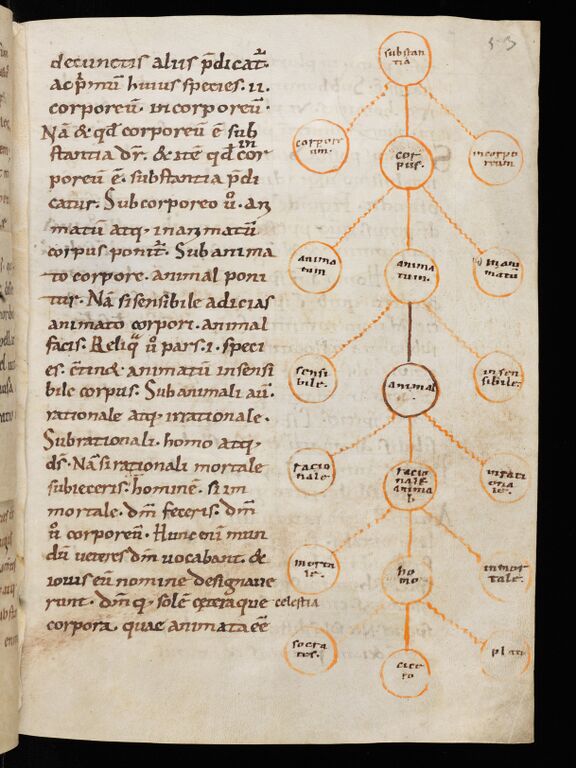 53
decunctis aliis p̄dicat᷑.
ac p̄mū huius species. ii.
corporeū. incorporeū.
Nā & qd̄ corporeū ē sub
stantia dr̄. & itē qd̄ incor
poreū ē. substantia p̄di
catur. Sub corporeo ū. ani
matum atq; inanimatū
corpus ponit᷑. Sub anima
to corpore. animal poni
tur. Nā si sensibile adicias
animato corpori. animal
facis. Reliq̄ ū pars. i. speci
es. c̄tinꝫ animatū insensi
bile corpus. Sub animali aū.
rationale atq; irrationale.
Sub rationali. homo atq;
ds̄. Nā si rationali mortale
subieceris. hominē. si im
mortale. dm̄ feceris. dm̄
ū corporeū. Hunc enī mun
dū veteres dm̄ vocabant. &
iovis eū nomine designave
runt. dm̄ q; solē ceteraque celestia
corpora. quae animata eē
substantia
corporeum.
corpus.
incorporeum
animatum
animatum.
inanimatū
sensibile.
animal.
insensibile.
racionale.
racionale animal.
irationale.
mortale.
homo.
inmortale.
socrates.
cicero
plato